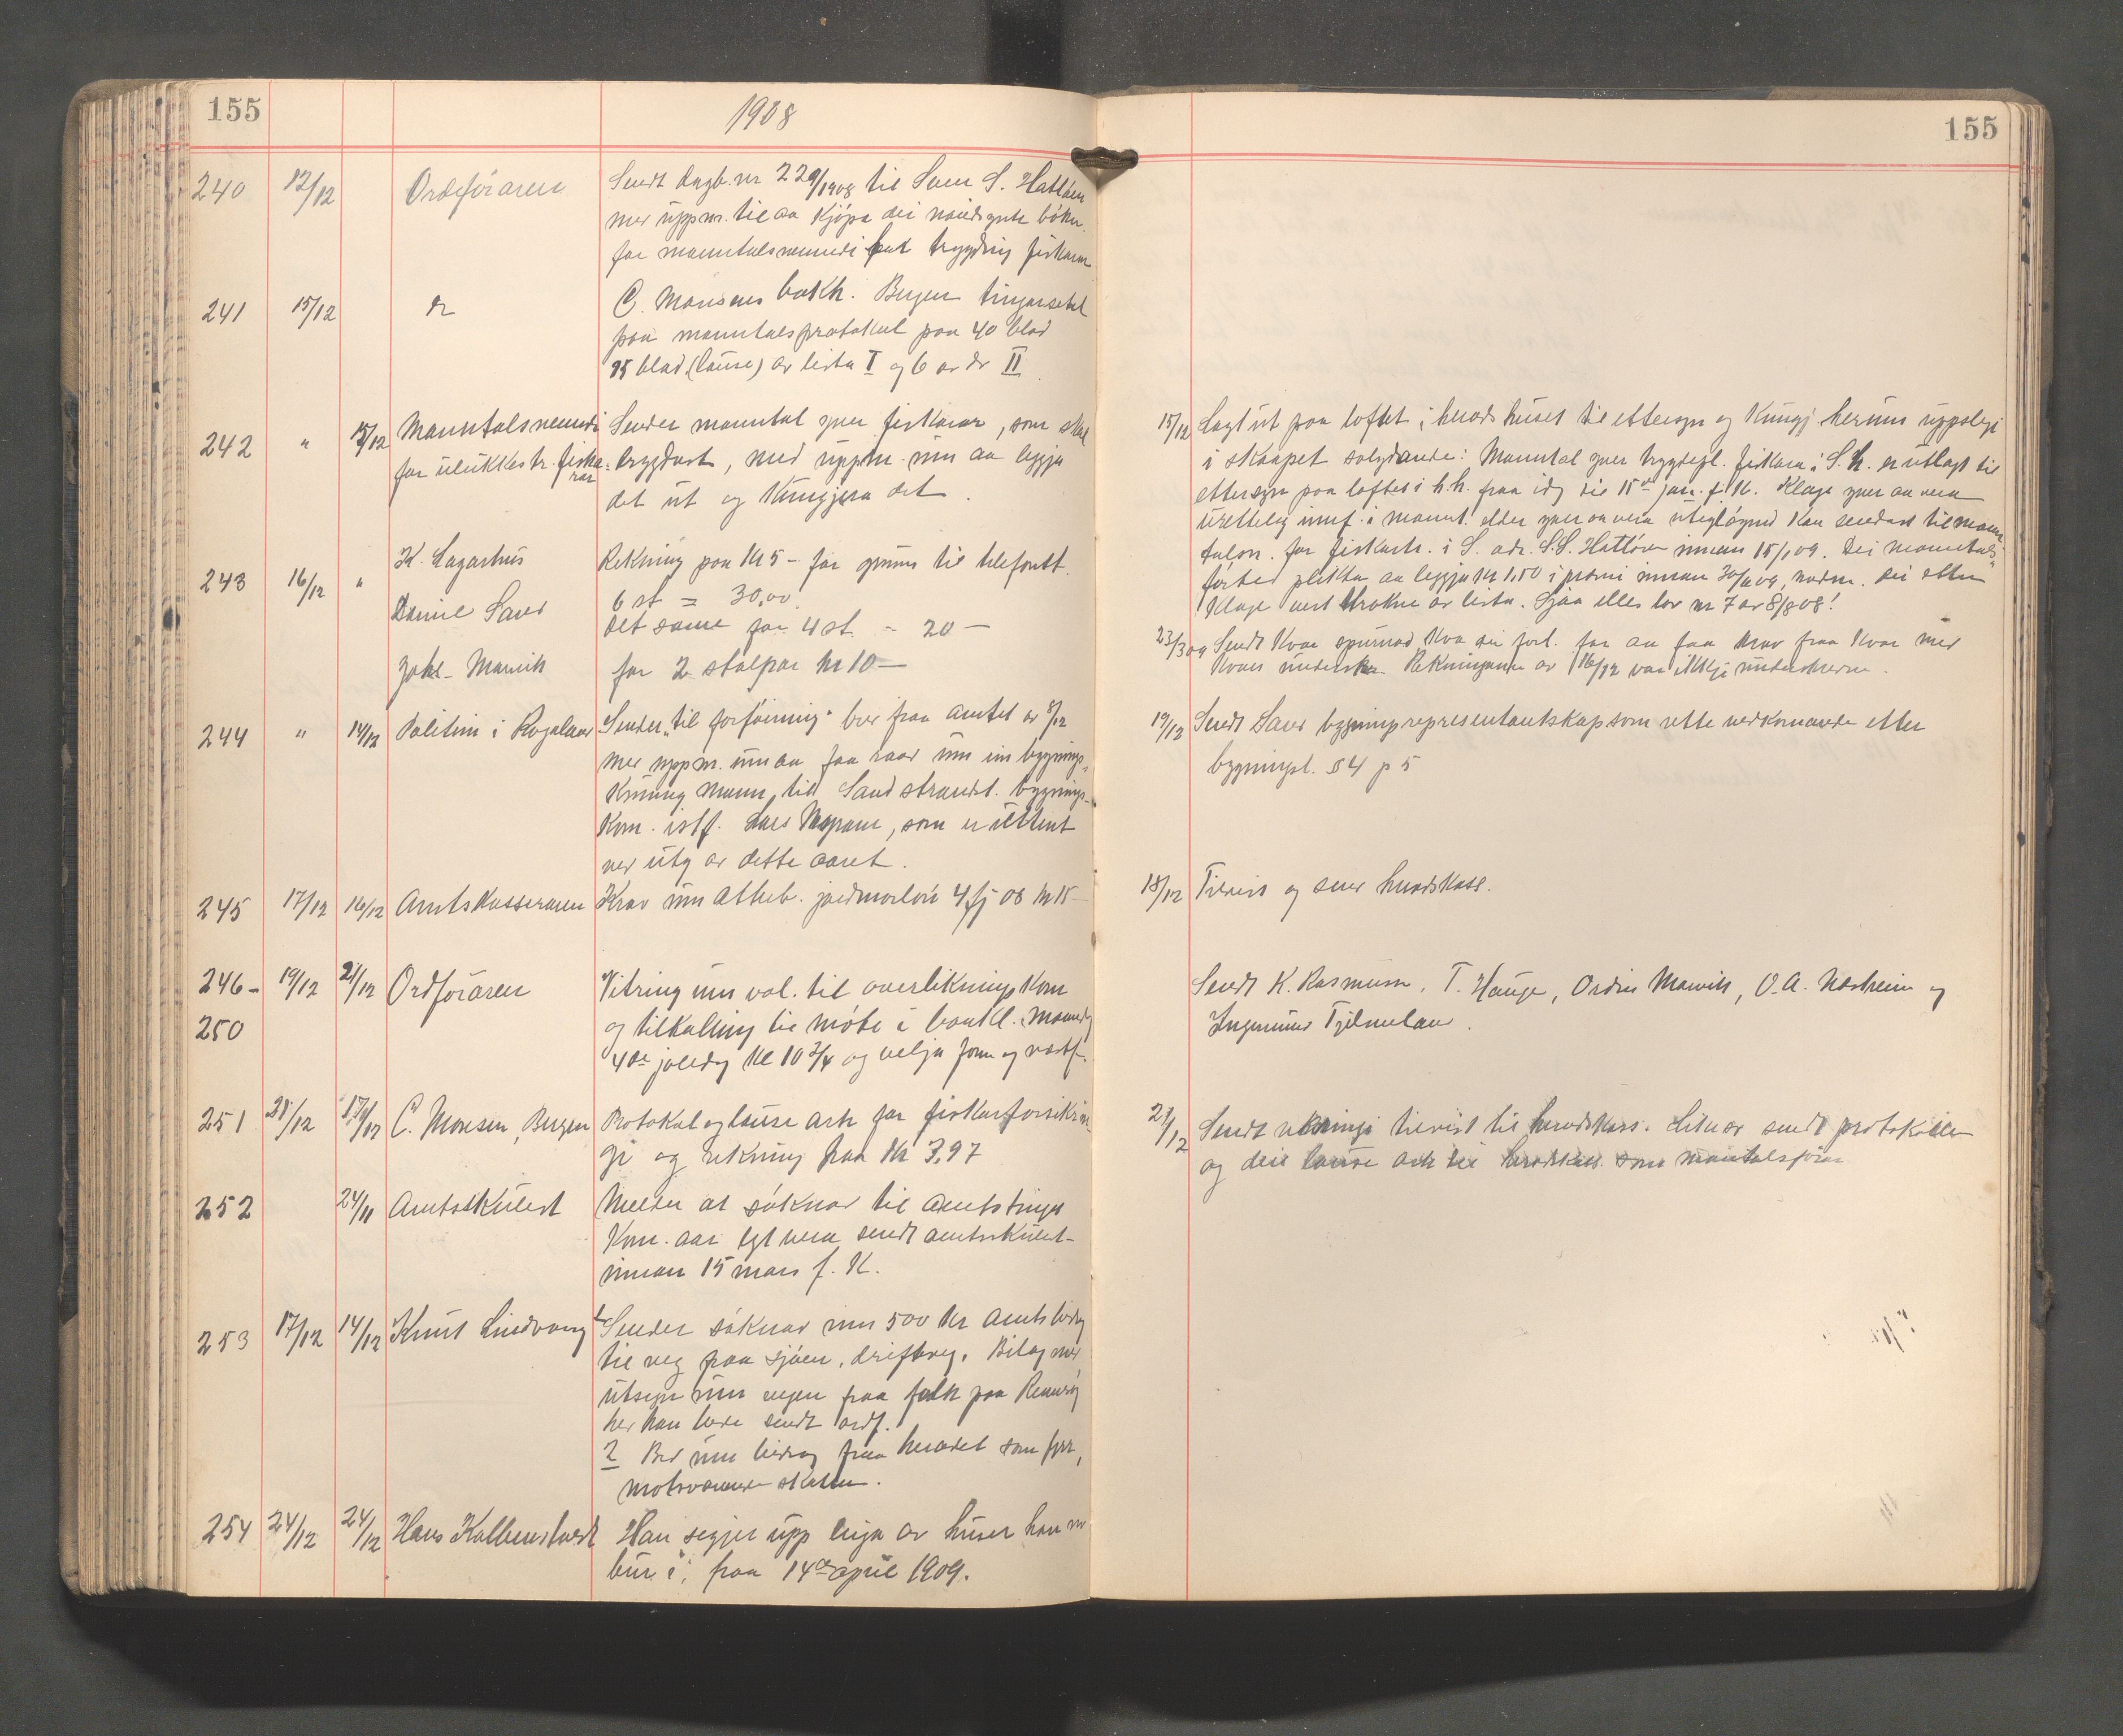 155
1908
240 12/12 Ordføraren Sendt dagb. nr 229/1908 til Sven S. Hatløen
med uppm. til aa kjøpa dei naudsynte bøker
for manntalsnemndi trygding fiskarar
241 15/12 do C. Monsens bokh. Bergen tingarsetel
paa manntalsprotokol paa 40 blad
95 blad (lause) av lista I og 6 av do II
242 " 15/12 Manntalsnemndi Sender manntal yver fiskarar, som skal
for ulukkestr. fiska- trygdast, med uppm. um aa leggja
rar
det ut og kungjera det.
243 16/12 " K. Lagarhus Rekning paa kr 5 - for grunn til telefonst.
6 st = 30,00
Daniel Sand det same for 4 st. - 20 -
Jakl. Marvik for 2 stolpar kr 10 -
244 " 14/12 Politiin i Rogaland Sender "til forføining" brev fraa amtet av 8/12
med uppm. um aa faa raad um ein bygnings-
kunnig mann til Sand strandst. bygnings-
kom. istf. Lars, som er uttent
ved utg av dette aaret.
245 17/12 16/12 Amtskasseraren Krav um attueb. jordmorløn 4 fj 08 kr 15 -
246- 19/12 21/12 Ordføraren Vitring um val. til overlikningskom
250 og tilkalling til møte i bankl. Maandag
4de joledag kl 10 3/4 og velja form og varaf.
251 21/12 19/12 C. Monsen, Bergen Protokol og lause ark for fiskarforsikrin-
gi og rekning paa kr 3,97
252 24/11 Amtsskulest Melder at søknar til amtstinget
kom. aar lyt vera sendt amtsskulest-
innan 15 mars f. k.
253 17/12 14/12 Knut Lindvang Sender søknad um 500 kr amtsbidrag
til veg fraa sjøen, driftveg. Bilag med
utsegn um vegen fraa folk paa
her han bede sendt ordf.
2 Bed um bidrag fraa heradet som fyrr,
motsvarande skatten.
254 24/12 24/12 Hans Kolbenstvedt Han segjer upp leiga av huset han no
bur i, fraa 14de april 1909.
155
15/12 Lagt ut paa loftet i heradshuset til ettersyn og kungj. herum uppslege
i skaapet solydande: Manntal yver trygdepl. fiskara i S. h. er utlagt til
ettersyn paa loftet i h.h. fraa idag til 15de jan. f. k. Klage yver aa vera
urettelig innf. i mannt. elder yver aa vera utegløymd kan sendast til mann-
talsn. for fiskartr. i S. adr. S.S. Hatløen innan 15/1 09. Dei manntals-
førde pliktar aa leggja kr 1,50 i premi innan 30/4 09, nadm. dei etter
klage vert strokne av lista. Sjaa elles lov nr 7 av 8/8 08!
23/3 09 Sendt kvar spurnad kva dei forl. for aa faa krav fraa kvar med
kvars underskr. Rekningarne av 16/12 var ikkje underskrevne.
19/12 Sendt Sand bygningsrepresentantskap som rette vedkomande etter
bygningsl. § 4 p 5
18/12 Tilvist og send heradskass.
Sendt K. Rasmussen, T. Hauge, Ordin Marvik, O. A. Næsheim og
Ingeniør Tjelmeland.
21/12 Sendt rekningi tilvist til heradskass. Likeso sendt protokollen
og dei lause ark til heradskass. som manntalsførar